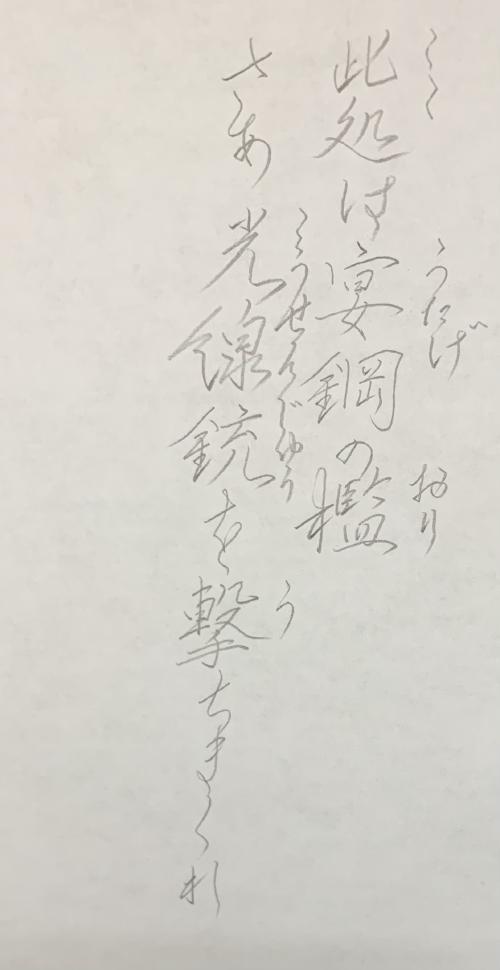 此処は宴鋼の檻
ここ
うたげ
おり
さあ光線銃を撃ちまくれ
こうせんじゅう
う